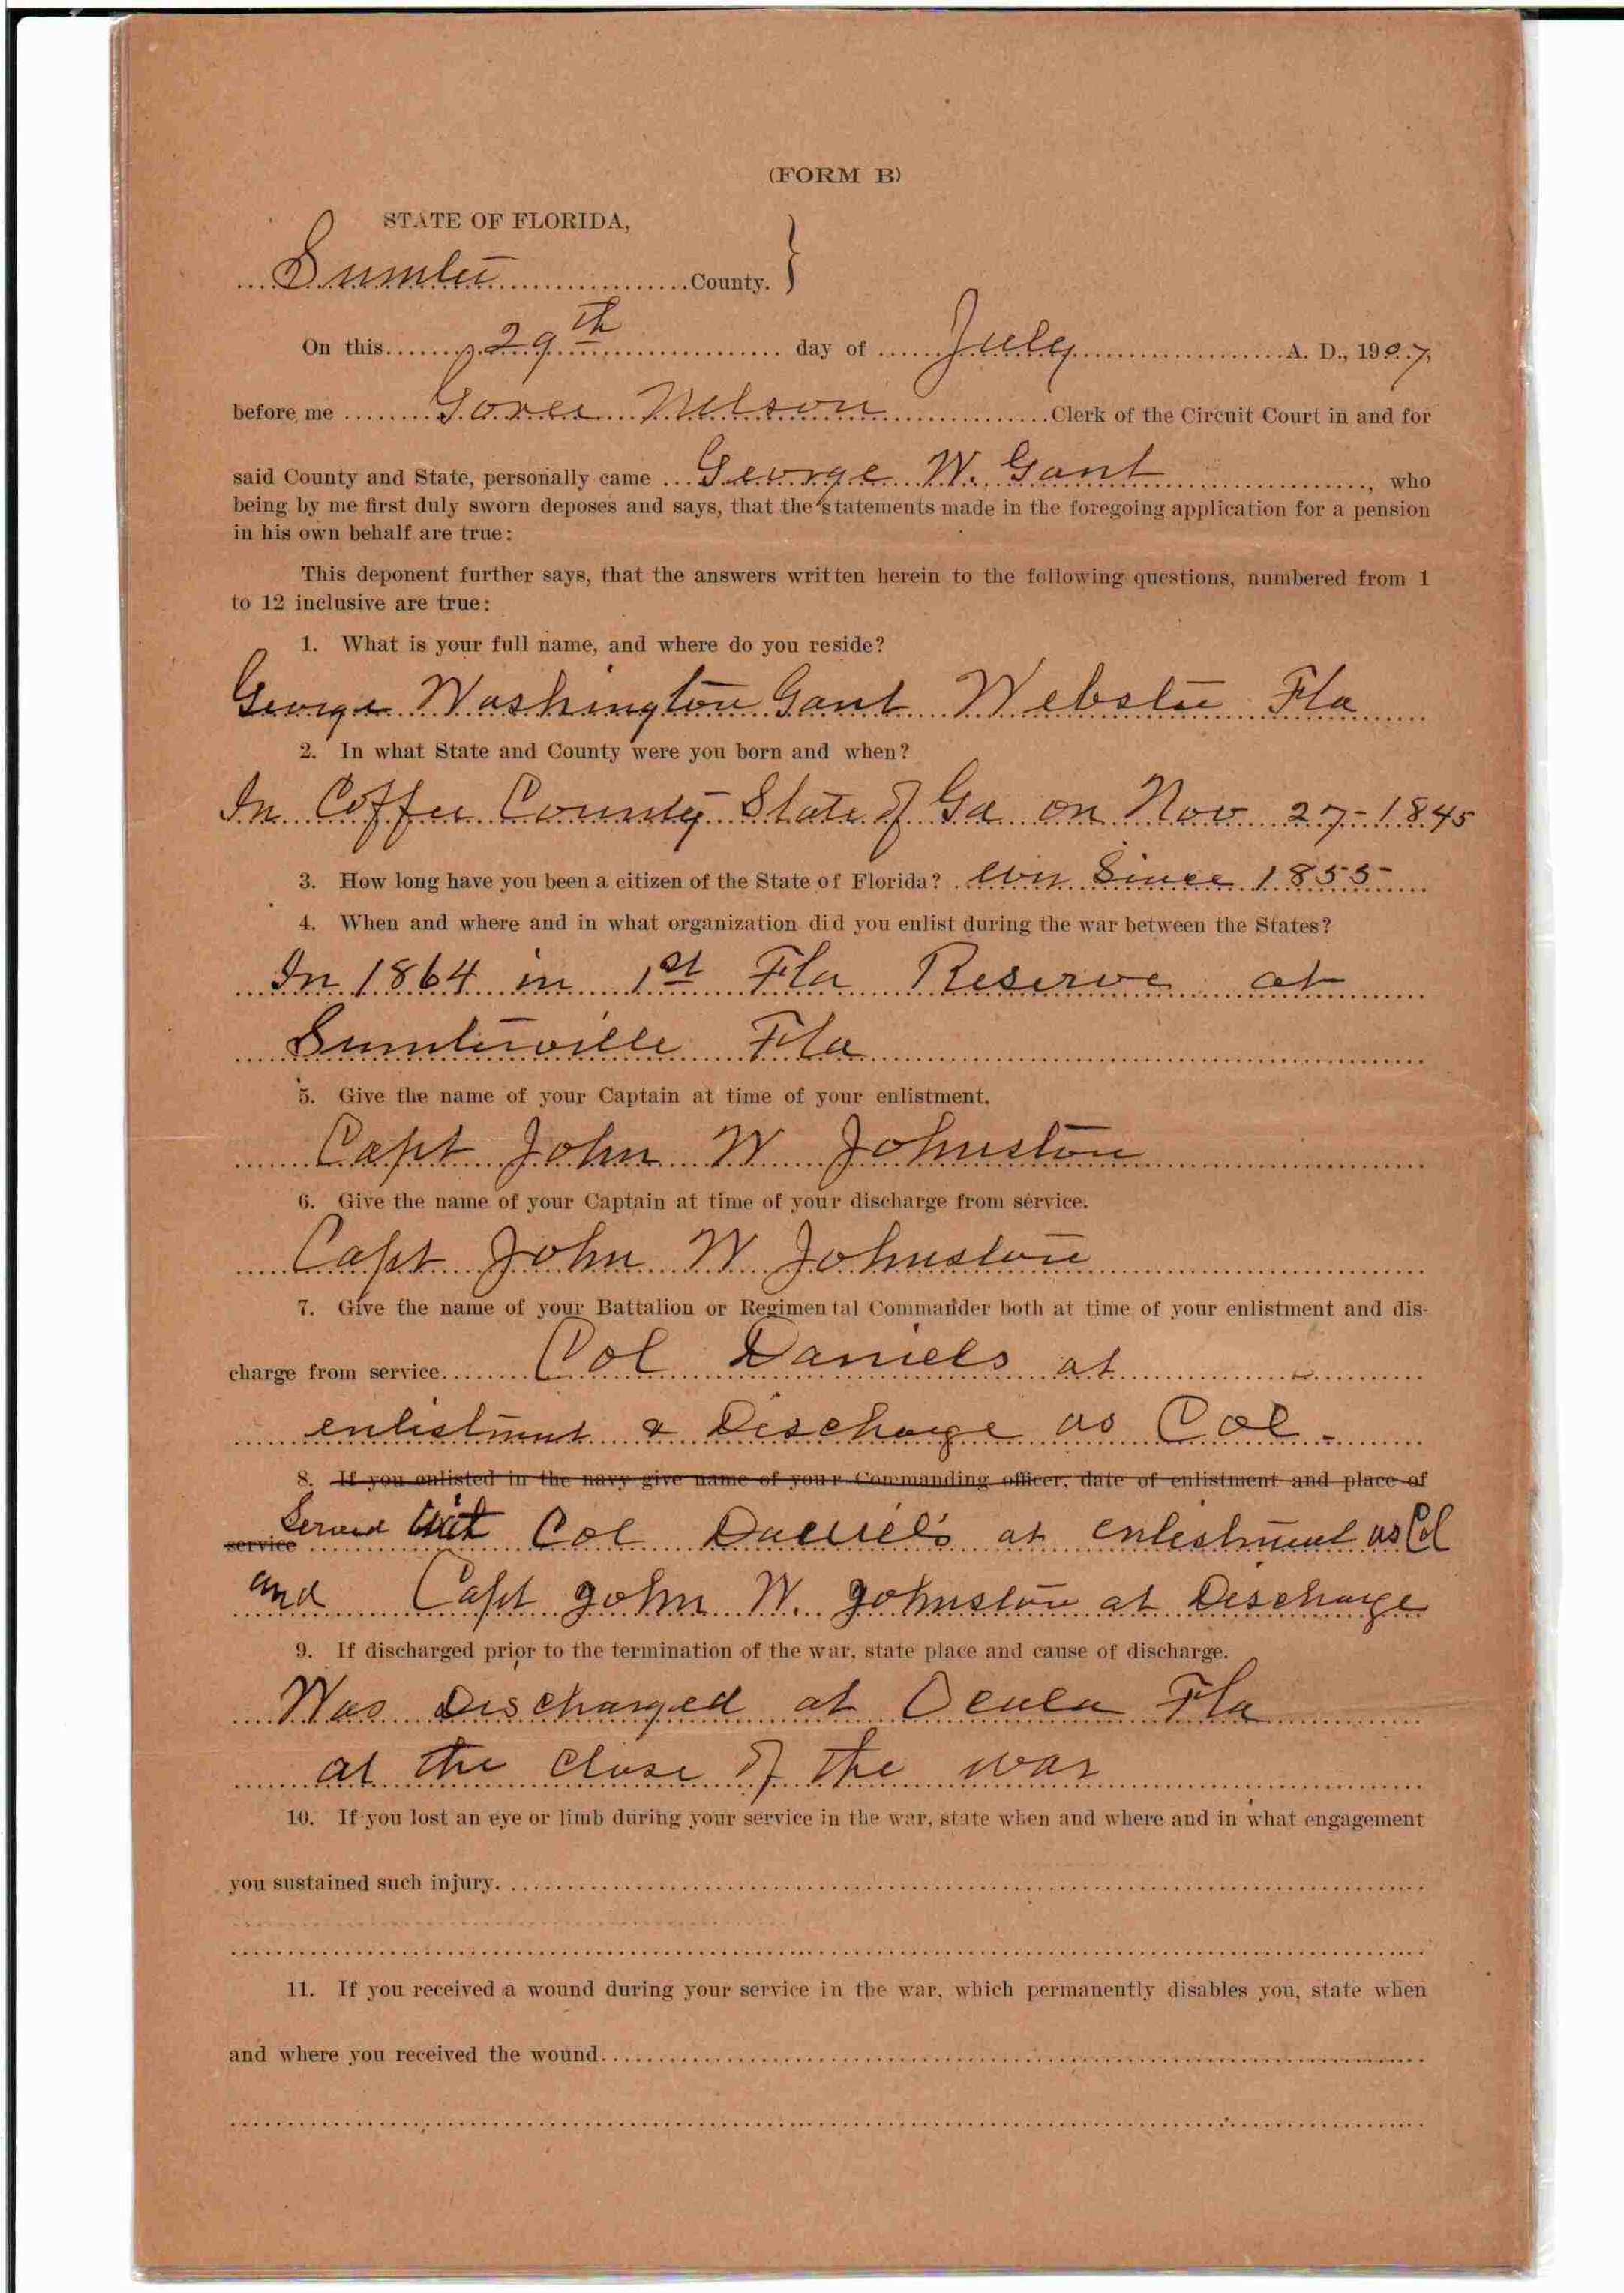 (FORM B)
STATE OF FLORIDA,
Sumter County.
On this 29th day of July A. D., 1907,
before me Clerk of the Circuit Court in and for
said County and State, personally came George W. Gant, who
being by me first duly sworn deposes and says, that the statements made in the foregoing application for a pension
in his own behalf are true:
This deponent further says, that the answers written herein to the following questions, numbered from 1
to 12 inclusive are true:
1. What is your full name, and where do you reside?
George Washington Gant Webster Fla
2. In what State and County were you born and when?
In Coffee County State of Ga on Nov 27-1845
3. How long have you been a citizen of the State of Florida? Ever Since 1855
4. When and where and in what organization did you enlist during the war between the States?
In 1864 in 1st Fla Reserve at
Sumterville Fla
5. Give the name of your Captain at time of your enlistment.
Capt John W Johnston
6. Give the name of your Captain at time of your discharge from service.
Capt John W Johnston
7. Give the name of your Battalion or Regimental Commander both at time of your enlistment and dis-
charge from service Col Daniels at
enlistment & Discharge as Col -
8. If you enlisted in the navy give name of your Commanding officer, date of enlistment and place of
service Served with Col Daniel's at enlistment as Col
and Capt John W. Johnston at Discharge
9. If discharged prior to the termination of the war, state place and cause of discharge.
Was Discharged at Ocala Fla
at the close of the war
10. If you lost an eye or limb during your service in the war, state when and where and in what engagement
you sustained such injury.
11. If you received a wound during your service in the war, which permanently disables you, state when
and where you received the wound